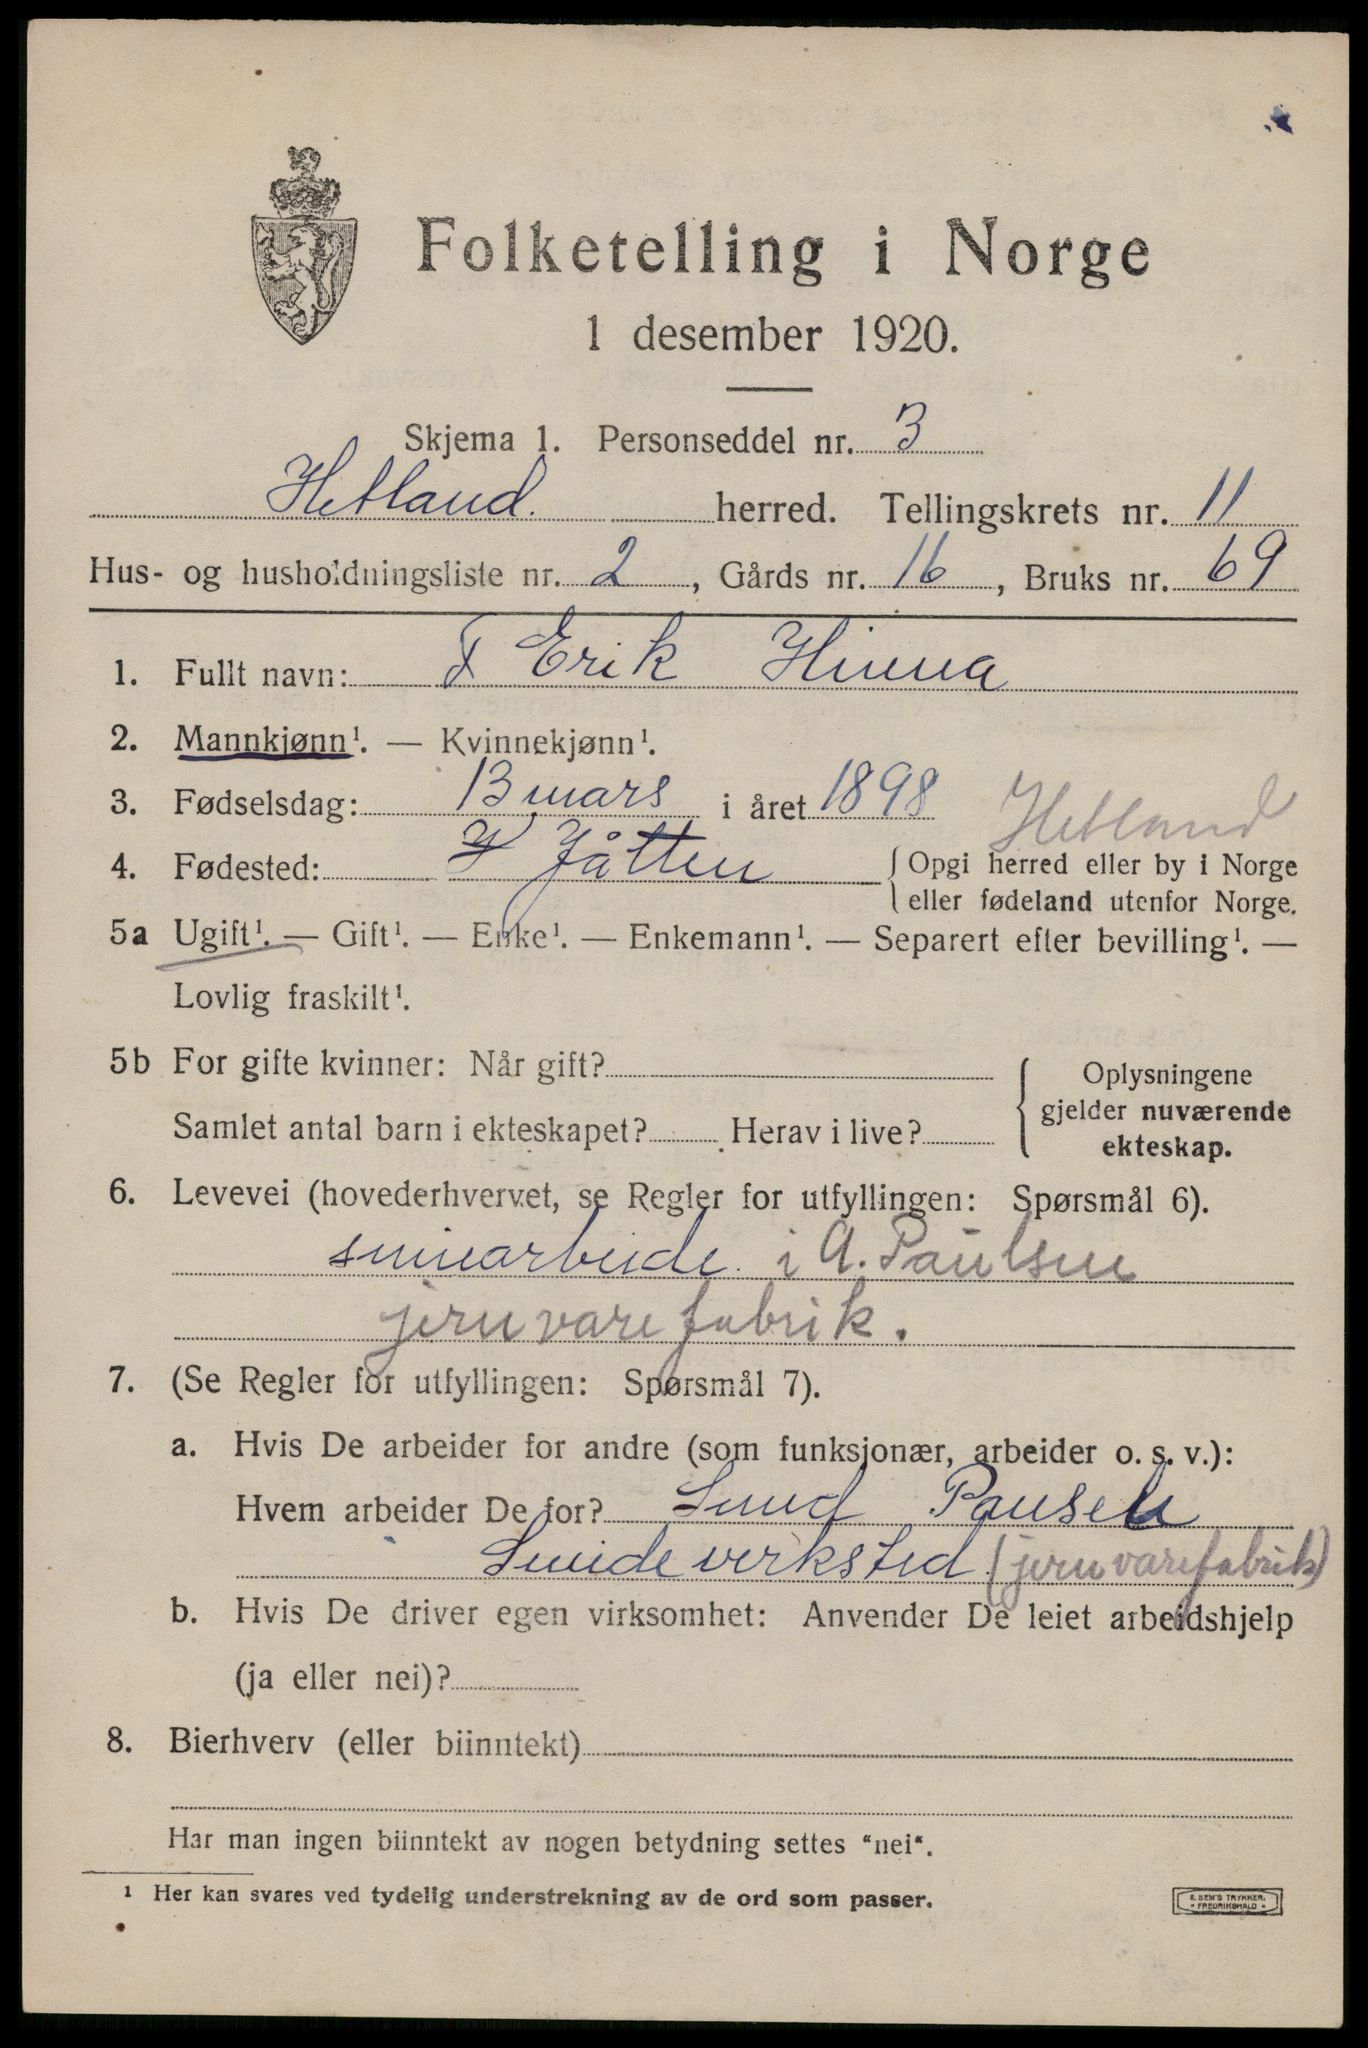 Folketelling i Norge
1 desember 1920.
Skjema 1. Personseddel nr. 3
Hetland. herred. Tellingskrets nr. 11
Hus- og husholdningsliste nr. 2, Gårds nr. 16, Bruks nr. 69
1. Fullt navn: Erik Hinna
2. Mannkjønn¹. — Kvinnekjønn¹.
3. Fødselsdag: 13 mars i året 1898
Hetland
4. Fødested: Jåtten { Opgi herred eller by i Norge
eller fødeland utenfor Norge.
5a Ugift¹. — Gift¹. — Enke¹. — Enkemann¹. — Separert efter bevilling¹. —
Lovlig fraskilt¹.
5b For gifte kvinner: Når gift? { Oplysningene
gjelder nuværende
Samlet antal barn i ekteskapet? Herav i live?
ekteskap.
6. Levevei (hovederhvervet, se Regler for utfyllingen: Spørsmål 6).
smiearbeide i A. Paulsen
jernvarefabrik.
7. (Se Regler for utfyllingen: Spørsmål 7).
a. Hvis De arbeider for andre (som funksjonær, arbeider o. s. v.):
Hvem arbeider De for? Pausen
Smideverksted (jernvarefabrik)
b. Hvis De driver egen virksomhet: Anvender De leiet arbeidshjelp
(ja eller nei)?
8. Bierhverv (eller biinntekt)
Har man ingen biinntekt av nogen betydning settes "nei".
¹ Her kan svares ved tydelig understrekning av de ord som passer.
E. SEM'S TRYKKER.
FREDRIKSHALD